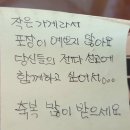 작은 가게라서
포장이 예쁘지 않아요
당신들의 진짜 선물에
함께하고 싶어서...
축복 많이 받으세요